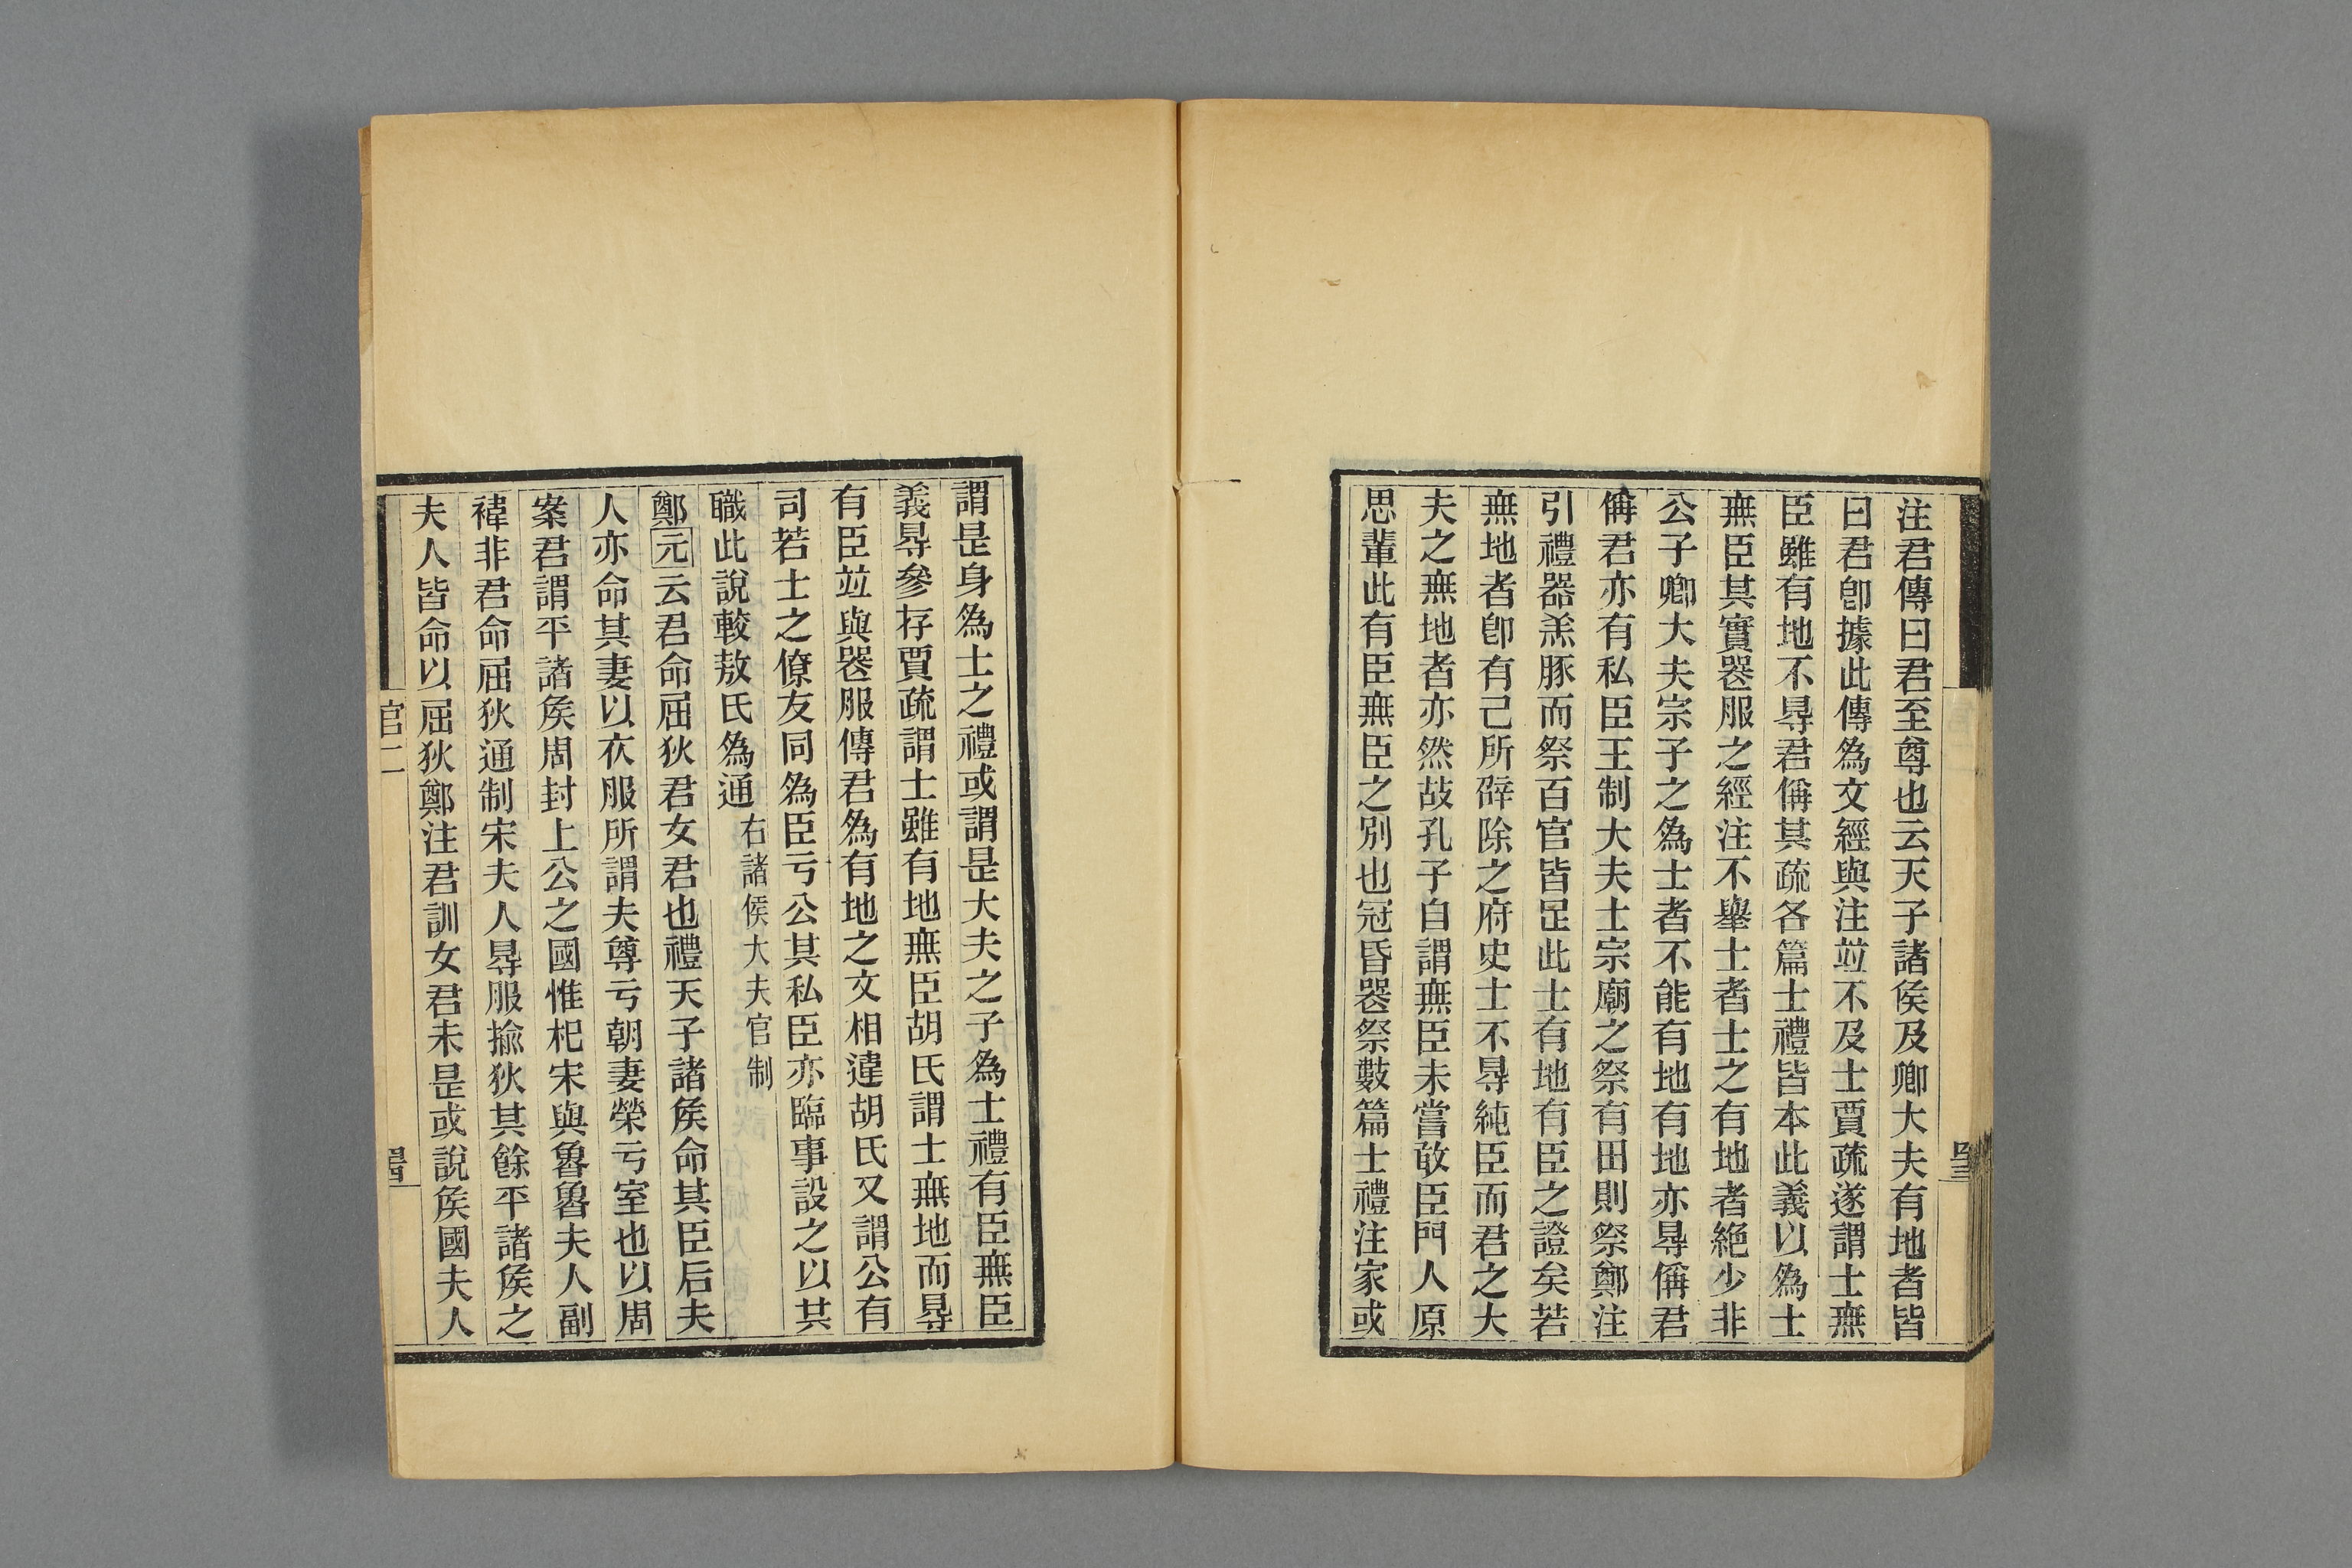 注君傳曰君至尊也云天子諸矦及卿大夫有地者皆
曰君卽據此傳爲文經與注竝不及士賈疏遂謂士無
臣雖有地不㝵君偁其疏各篇士禮皆本此義以爲士
無臣其實喪服之經注不舉士者士之有地者絕少非
公子卿大夫宗子之爲士者不能有地有地亦㝵偁君
偁君亦有私臣王制大夫士宗廟之祭有田則祭鄭注
引禮器羔豚而祭百官皆足此士有地有臣之證矣若
無地者卽有己所辟除之府史士不㝵純臣而君之大
夫之無地者亦然故孔子自謂無臣未嘗敢臣門人原
思輩此有臣無臣之別也冠昏喪祭數篇士禮注家或
謂是身爲士之禮或謂是大夫之子爲士禮有臣無臣
義㝵參存賈疏謂士雖有地無臣胡氏謂士無地而㝵
有臣竝與喪服傳君爲有地之文相違胡氏又謂公有
司若士之僚友同爲臣亏公其私臣亦臨事設之以其
職此說較敖氏爲通右諸侯大夫官制
鄭元云君命屈狄君女君也禮天子諸矦命其臣后夫
人亦命其妻以衣服所謂夫尊亏朝妻榮亏室也以周
案君謂平諸矦周封上公之國惟杞宋與魯魯夫人副
褘非君命屈狄通制宋夫人㝵服揄狄其餘平諸矦之
夫人皆命以屈狄鄭注君訓女君未是或說矦國夫人
官二